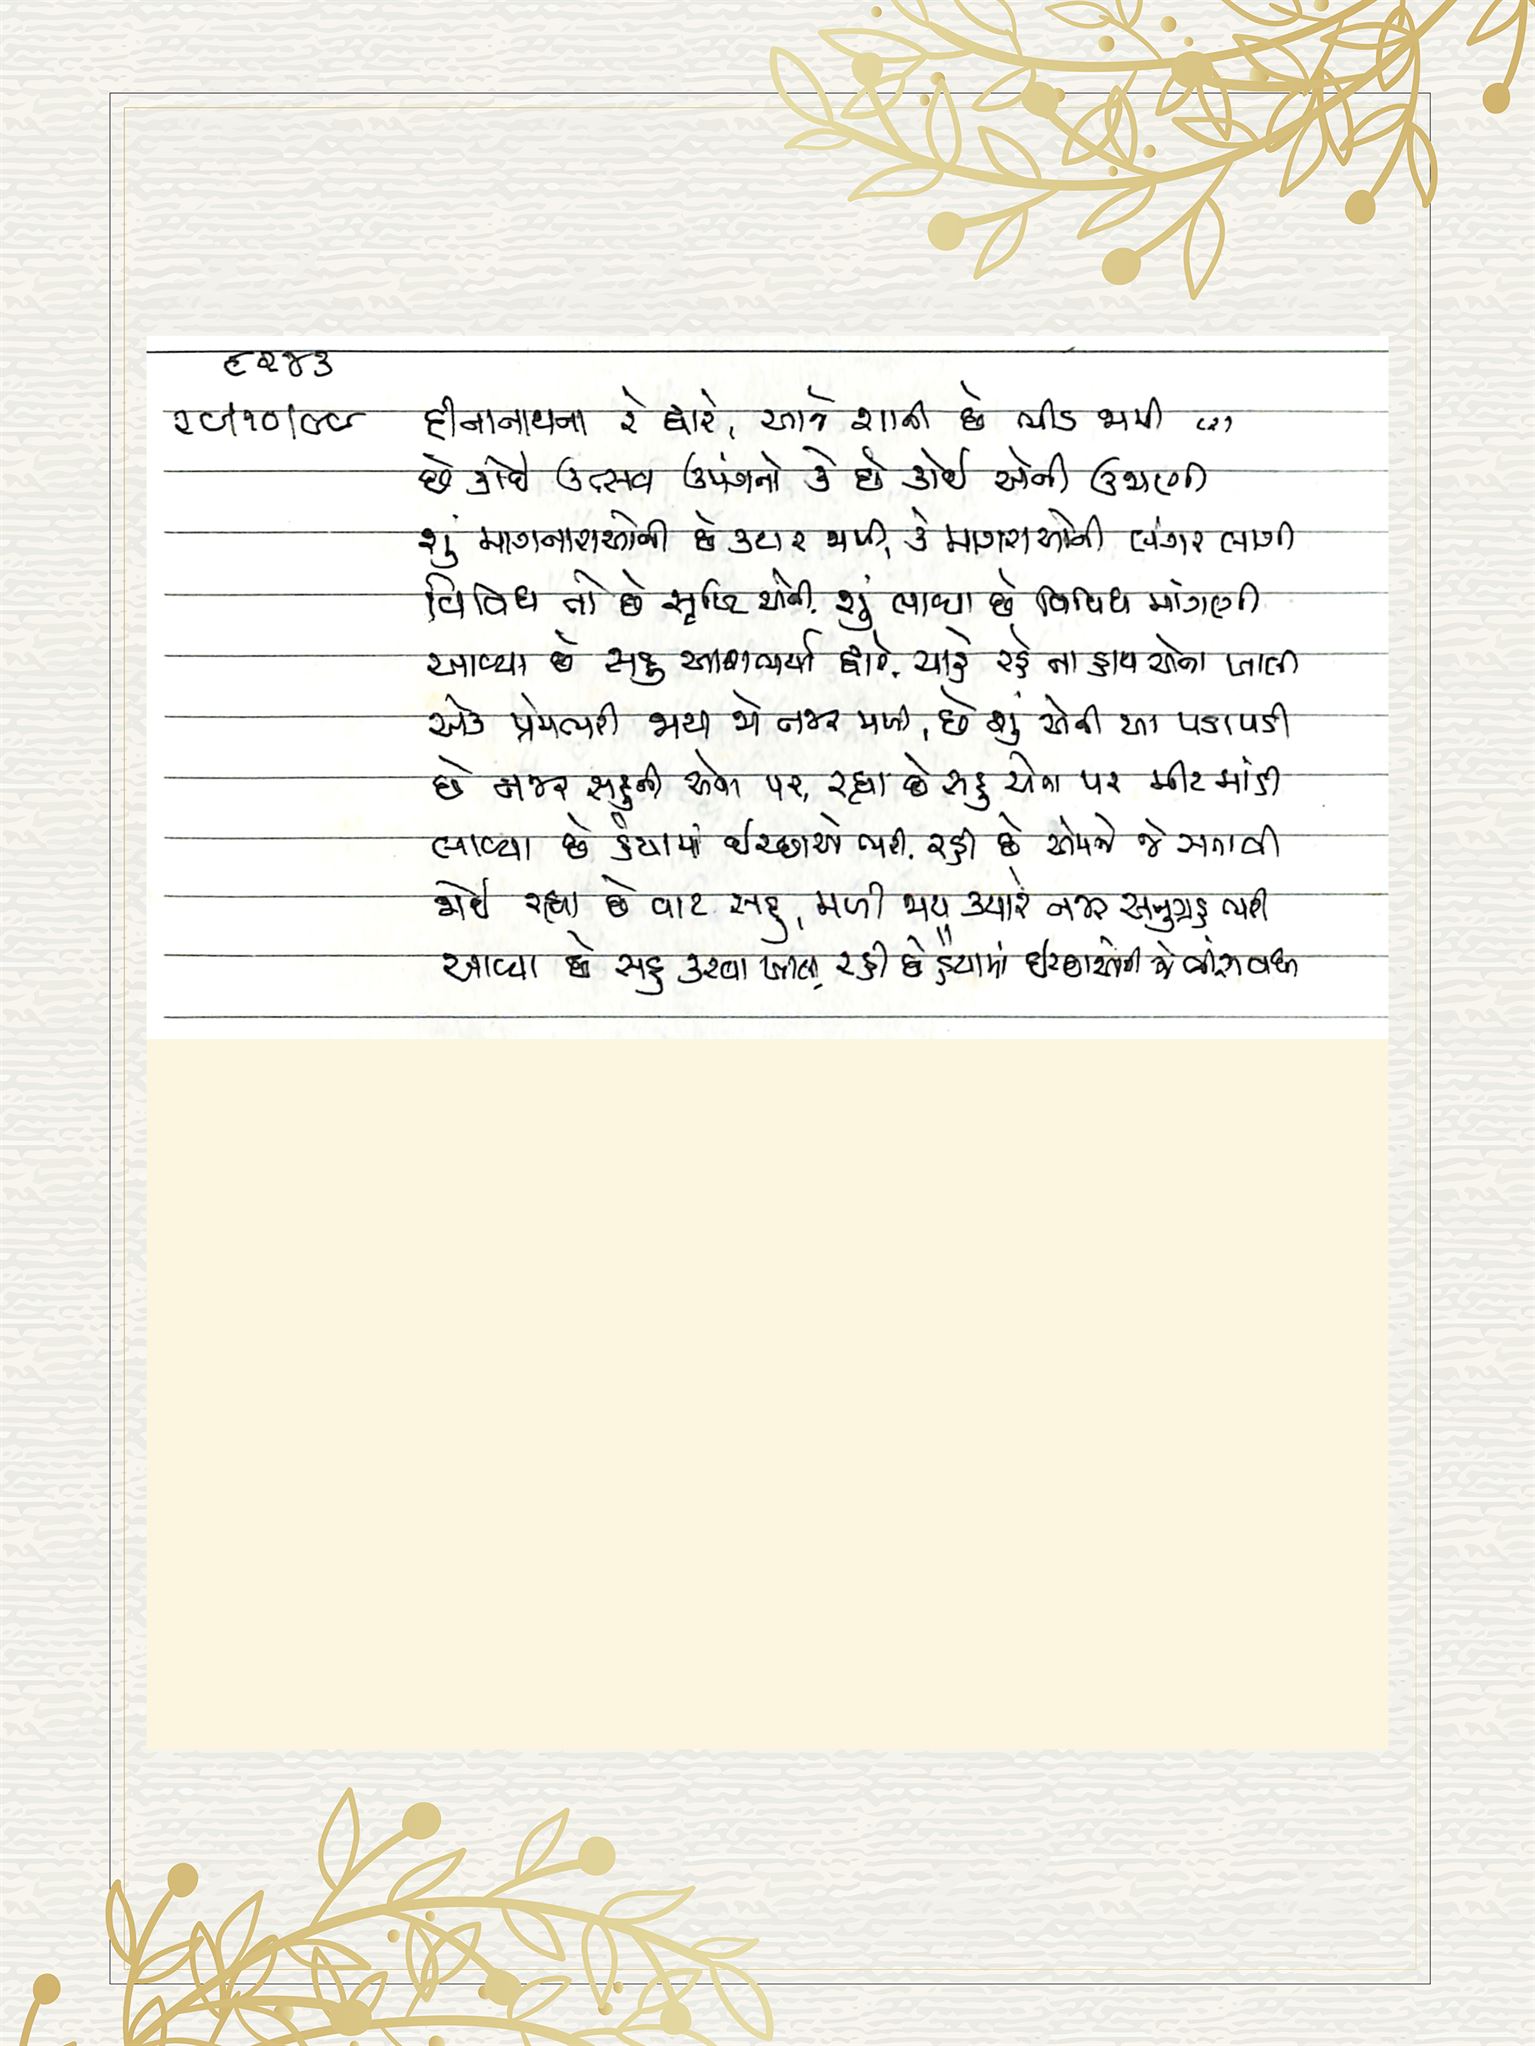 ૮૨૪૩
૨૯/૧૦/૯૯ દીનાનાથના રે દ્વારે, આજે શાની છે ભીડ જામી (૨)
છે કોઈ ઉત્સવ ઉમંગનો કે છે કોઈ એની ઉજાણી
શું માગનારાઓની છે કતાર મળી, કે માગણાઓની લંગાર લાગી
વિવિધ તો છે સૃષ્ટિ એની, શું લાવ્યા છે વિવિધ માંગણી
આવ્યા છે સહુ આશાભર્યા દ્વારે, ચાહે રહે ના હાથ એના ખાલી
એક પ્રેમભરી જાય જો નજર મળી, છે શું એની આ પડાપડી
છે નજર સહુની એના પર, રહ્યા છે સહુ એના પર મીટ માંડી
લાવ્યા છે હૈયામાં ઈચ્છાઓ ભરી, રહી છે એમને જે સતાવી
જોઈ રહ્યા છે વાટ સહુ, મળી જાય ક્યારે નજર અનુગ્રહ ભરી
આવ્યા છે સહુ કરવા ખાલી, રહી છે હૈયામાં ઈચ્છાઓની જે વધી